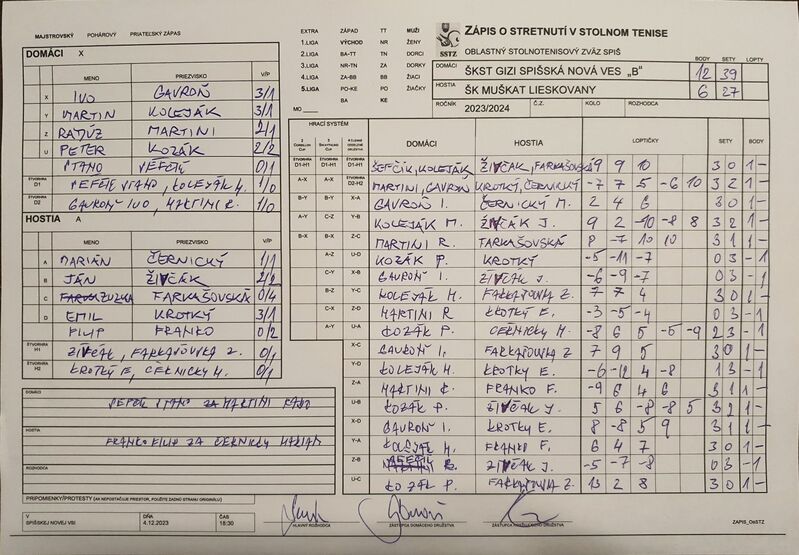 MAJSTROVSKÝ POHÁROVÝ PRIATEĽSKÝ ZÁPAS
DOMÁCI X
MENO PRIEZVISKO V/P
X IVO GAVROŇ 3/1
Y MARTIN KOLEJÁK 3/1
Z RADÚZ MARTINI 2/1
U PETER KOZÁK 2/2
STANO 0/1
ŠTVORHRA D1 STANO, KOLEJÁK M. 1/0
ŠTVORHRA D2 GAVROŇ IVO, MARTINI R. 1/0
HOSTIA A
MENO PRIEZVISKO V/P
A MARIÁN ČERNICKÝ 1/1
B JÁN ŽIVČÁK 2/2
C ZUZKA FARKAŠOVSKÁ 0/4
D EMIL KROTKÝ 3/1
FILIP FRANKO 0/2
ŠTVORHRA H1 ŽIVČÁK, Z. 0/1
ŠTVORHRA H2 KROTKÝ E, ČERNICKÝ M. 0/1
DOMÁCI
STANO ZA MARTINI
HOSTIA
FRANKO FILIP ZA ČERNICKÝ MARIAN
ROZHODCA
PRIPOMIENKY/PROTESTY (AK NEPOSTAČUJE PRIESTOR, POUŽITE ZADNÚ STRANU ORIGINÁLU)
V SPIŠSKEJ NOVEJ VSI DŇA 4.12.2023 ČAS 18:30
EXTRA ZÁPAD TT MUŽI
1.LIGA VÝCHOD NR ŽENY
2.LIGA BA-TT TN DORCI
3.LIGA NR-TN ZA DORKY
4.LIGA ZA-BB BB ŽIACI
5.LIGA PO-KE PO ŽIAČKY
BA KE
MO
SSTZ
ZÁPIS O STRETNUTÍ V STOLNOM TENISE
OBLASTNÝ STOLNOTENISOVÝ ZVÄZ SPIŠ
BODY SETY LOPTY
DOMÁCI ŠKST GIZI SPIŠSKÁ NOVÁ VES „B" 12 39
HOSTIA ŠK MUŠKAT LIESKOVANY 6 27
ROČNÍK 2023/2024 Č.Z. KOLO ROZHODCA
HRACÍ SYSTÉM
DOMÁCI HOSTIA LOPTIČKY SETY BODY
ŠTVORHRA D1-H1 ŠTVORHRA D1-H1 ŠTVORHRA D1-H1 KOLEJÁK ŽIVČAK, FARKAŠOVSKÁ 9 9 10 3 0 1 -
A-X A-X ŠTVORHRA D2-H2 MARTINI, GAVROŇ KROTKÝ, ČERNICKÝ -7 7 5 -6 10 3 2 1 -
B-Y B-Y X-A GAVROŇ I. ČERNICKÝ M. 2 4 6 3 0 1 -
A-Y C-Z Y-B KOLEJÁK M. ŽIVČÁK J. 9 2 -10 -8 8 3 2 1 -
B-X B-X Z-C MARTINI R. FARKAŠOVSKÁ 8 -7 10 10 3 1 1 -
A-Z U-D KOZÁK P. KROTKÝ -5 -11 -7 0 3 - 1
C-Y X-B GAVROŇ I. ŽIVČÁK J. -6 -9 -7 0 3 - 1
B-Z Y-C KOLEJÁK M. Z. 7 7 4 3 0 1 -
C-X Z-D MARTINI R KROTKÝ E. -3 -5 -4 0 3 - 1
A-Y U-A KOZÁK P. ČERNICKÝ M. -8 6 5 -5 -9 2 3 - 1
X-C GAVROŇ I. Z. 7 9 5 3 0 1 -
Y-D KOLEJÁK M. KROTKY E. -6 -12 4 -8 1 3 - 1
Z-A MARTINI R. FRANKO F. -9 6 4 6 3 1 1 -
U-B KOZÁK P. ŽIVČÁK J. 5 6 -8 -8 5 3 2 1 -
X-D GAVROŇ I. KROTKY E. -8 5 9 3 1 1 -
Y-A KOLEJÁK M. FRANKO F. 6 4 7 3 0 1 -
Z-B ŽIVČÁK J. -5 -7 -8 0 3 - 1
U-C KOZÁK P. Z. 13 2 8 3 0 1 -
HLAVNÝ ROZHODCA ZÁSTUPCA DOMÁCEHO DRUŽSTVA ZÁSTUPCA HOSŤUJÚCEHO DRUŽSTVA ZAPIS_OsSTZ